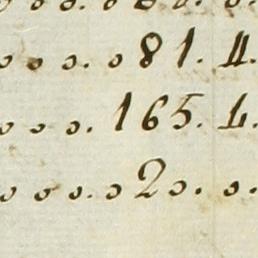 o o o. o 81. 4.
o o o. 165. 4.
o o o. o 20. o.